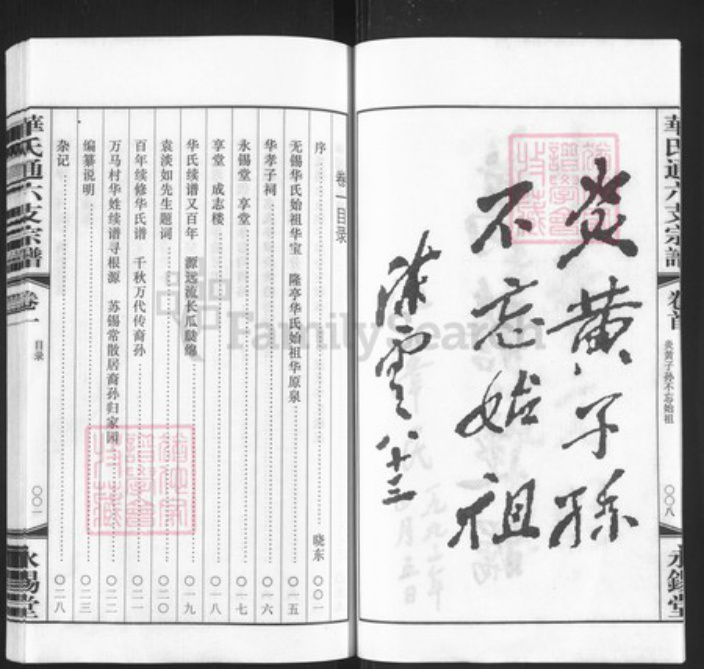 華氏通六支宗譜
卷首
炎黄子孙不忘始祖
〇〇八
永錫堂
炎黄子孙
不忘始祖
陈云 八十三
卷一目录
序 晓东 〇〇一
无锡华氏始祖华宝 隆亭华氏始祖华原泉 〇一五
华孝子祠 〇一六
永锡堂 享堂 〇一七
享堂 成志楼 〇一八
华氏续谱又百年 源远流长瓜瓞绵 〇一九
袁淡如先生题词 〇二〇
百年续修华氏谱 千秋万代传裔孙 〇二一
万马村华姓续谱寻根源 苏锡常散居裔孙归家园 〇二二
编纂说明 〇二三
杂记 〇二八
華氏通六支宗譜
卷一
目录
〇〇一
永錫堂
FamilySearch